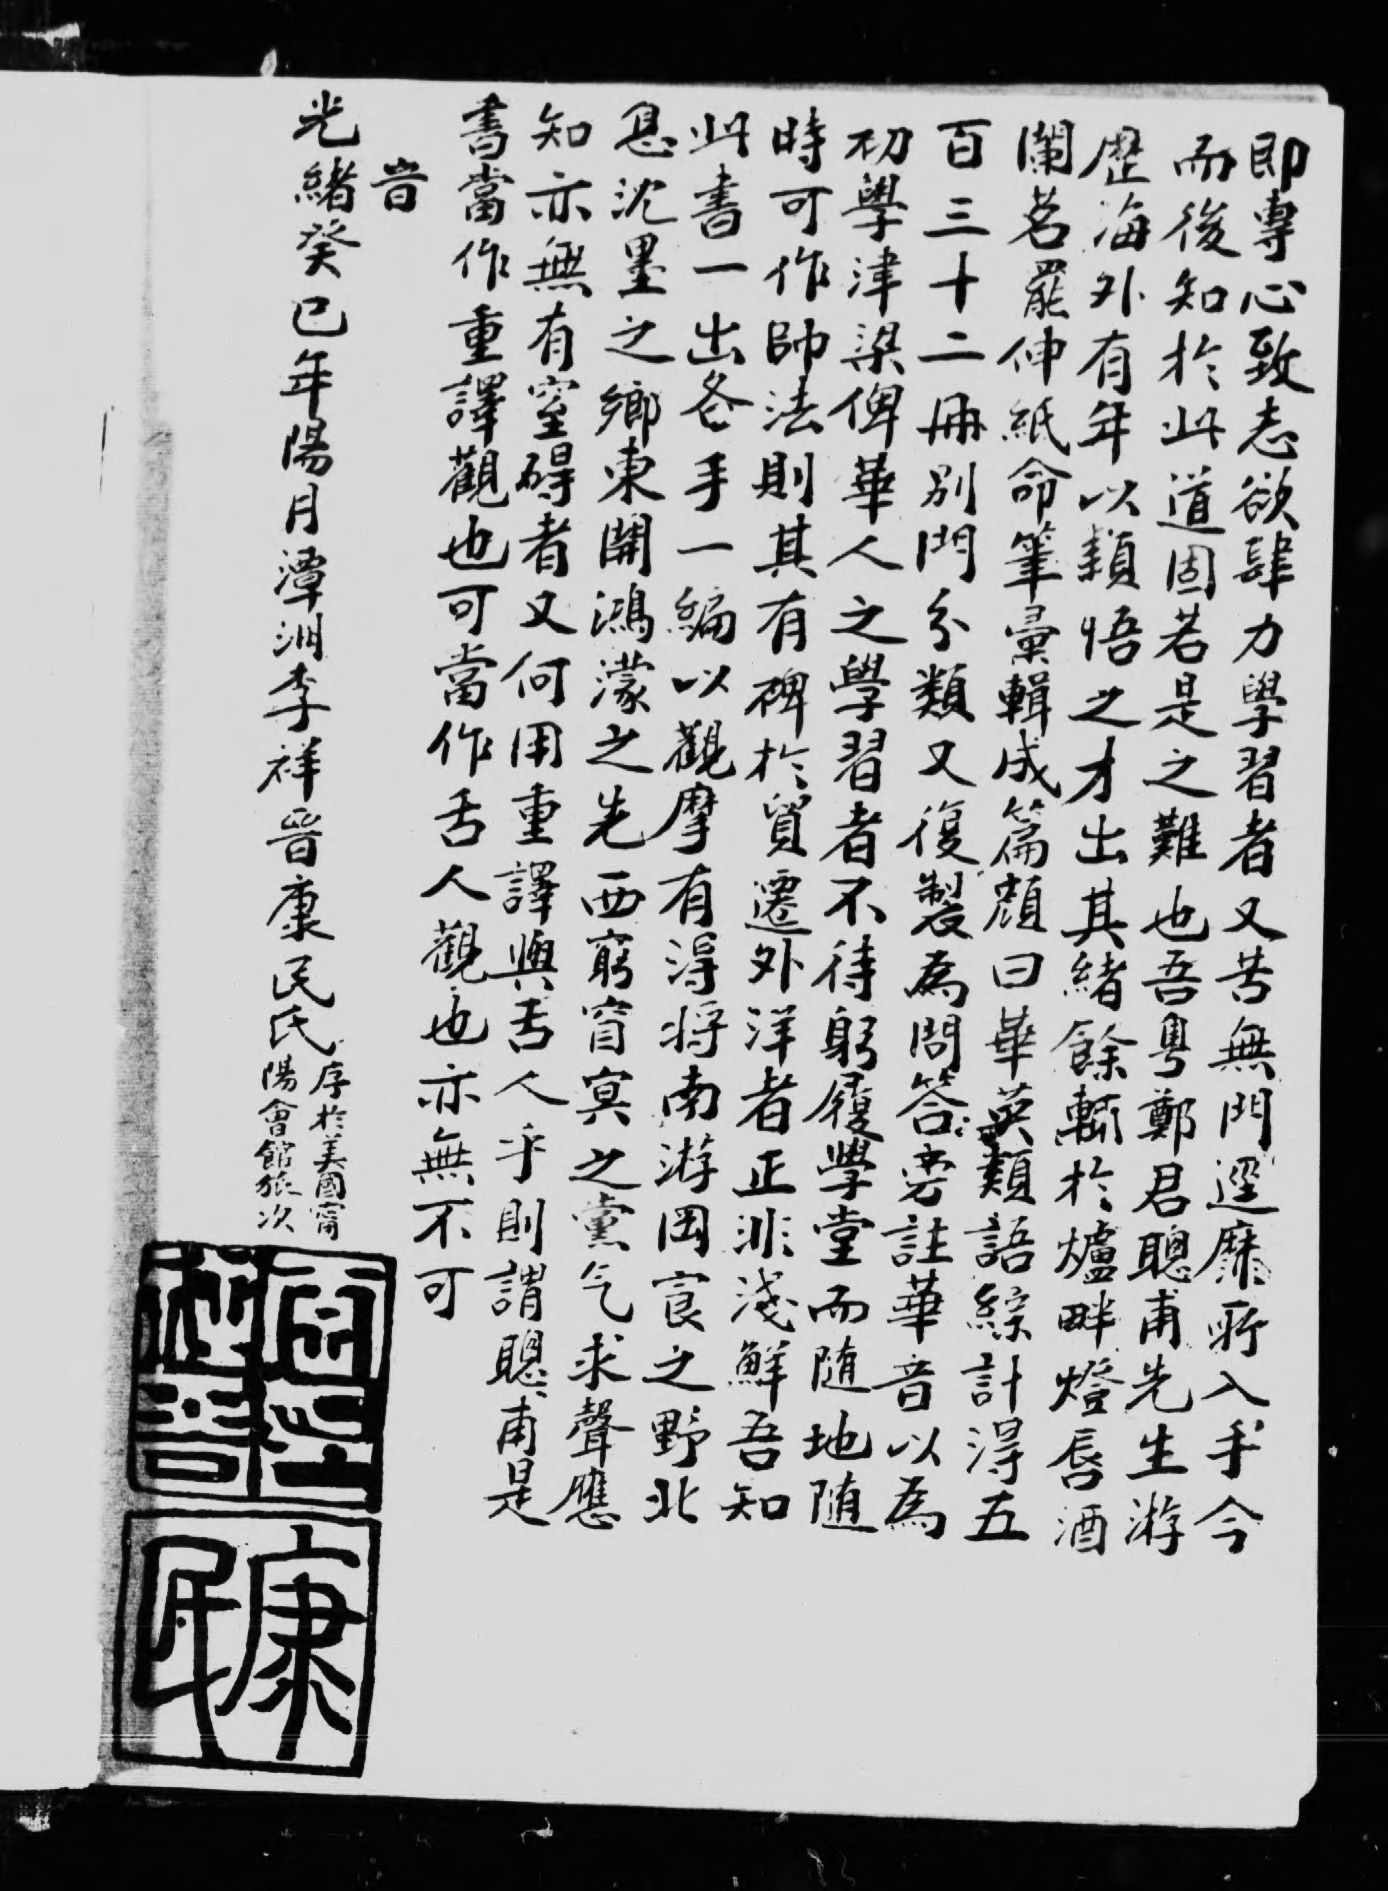 即專心致志欲肆力學習者又苦無門逕靡所入手今
而後知於此道固若是之難也吾粵鄭君聰甫先生游
歷海外有年以類悟之才出其緒餘輒於爐畔燈唇酒
闌茗罷伸紙命筆彙輯成篇顔曰華英類語綜計得五
百三十二冊別門分類又復製為問答旁註華音以為
初學津梁俾華人之學習者不待躬履學堂而随地随
時可作師法則其有裨於貿遷外洋者正非淺鮮吾知
此書一出各手一編以觀摩有得將南游罔㝗之野北
息沈墨之鄉東開鴻濛之先西窮窅冥之黨气求聲應
知亦無有窒碍者又何用重譯與舌人乎則謂聰甫是
書當作重譯觀也可當作舌人觀也亦無不可
旹
光緒癸巳年陽月潭洲李祥晉康民氏
序於美國甯
陽會館旅次
康民